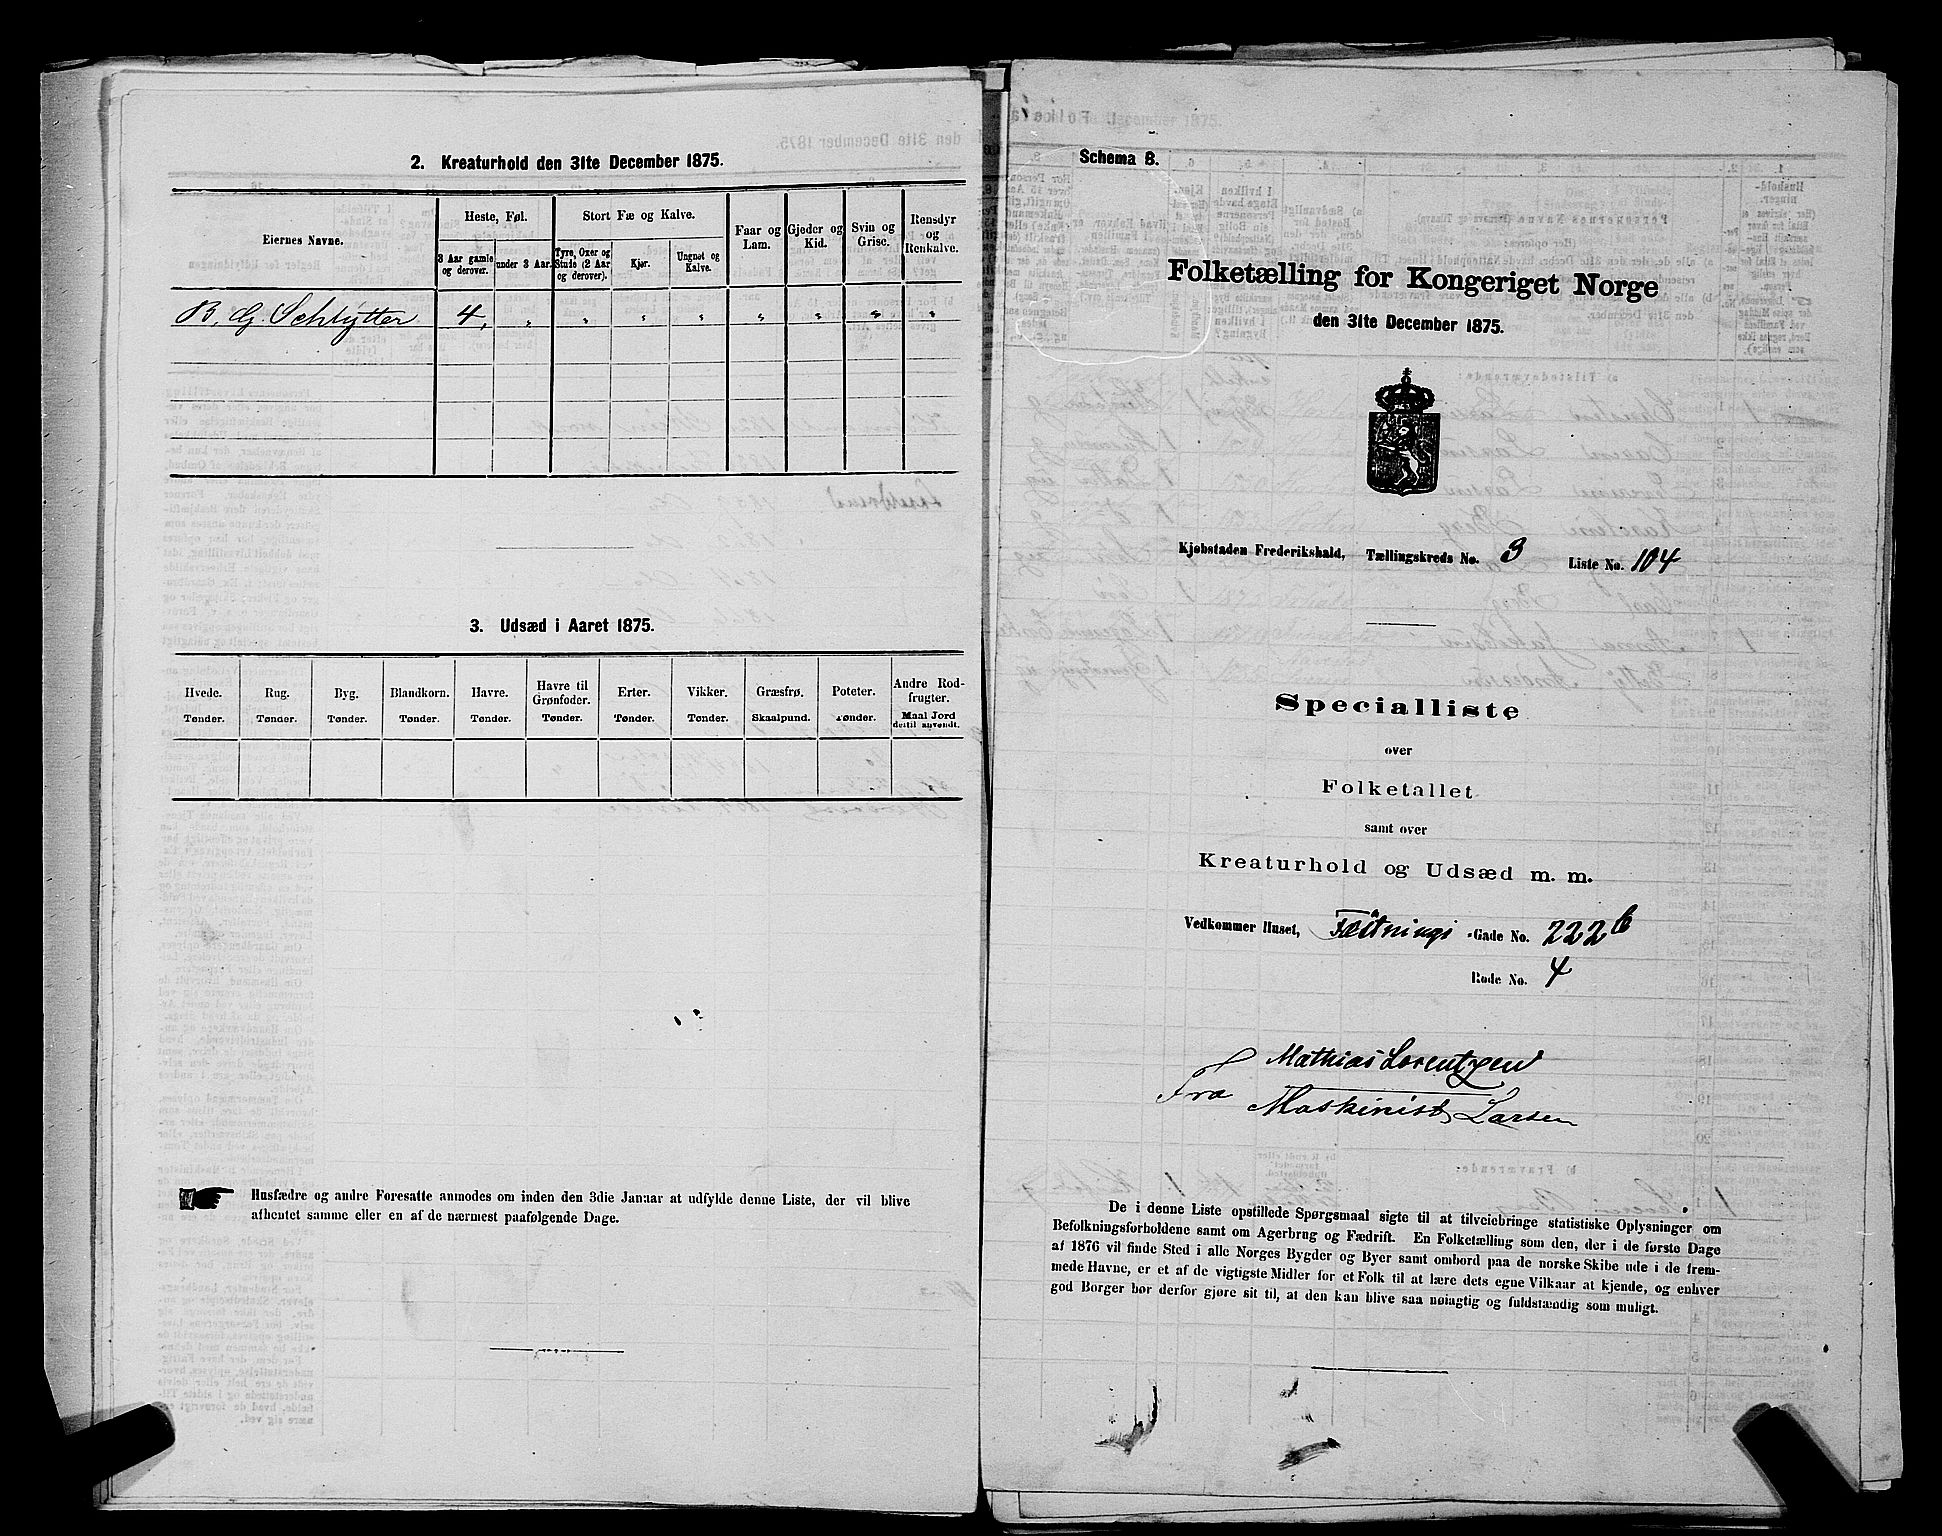 2. Kreaturhold den 31te December 1875.
Eiernes Navne.
Heste, Føl.
3 Aar gamle og derover.
under 3 Aar.
Stort Fæ og Kalve.
Tyre, Oxer og Stude (2 Aar og derover).
Kjør.
Ungnøt og Kalve.
Faar og Lam.
Gjeder og Kid.
Svin og Grise.
Rensdyr og Renkalve.
B. G. Schlytter 4, „ „ „ „ „ „ „ „
3. Udsæd i Aaret 1875.
Hvede. Rug. Byg. Blandkorn. Havre. Havre til Grønfoder. Erter. Vikker. Græsfrø. Poteter. Andre Rodfrugter.
Tønder. Tønder. Tønder. Tønder. Tønder. Tønder. Tønder. Tønder. Skaalpund. Tønder. Maal Jord dertil anvendt.
Husfædre og andre Foresatte anmodes om inden den 3die Januar at udfylde denne Liste, der vil blive
afhentet samme eller en af de nærmest paafølgende Dage.
Schema 8.
Folketælling for Kongeriget Norge
den 31te December 1875.
Kjøbstaden Frederikshald, Tællingskreds No. 3 Liste No. 104
Specialliste
over
Folketallet
samt over
Kreaturhold og Udsæd m. m.
Vedkommer Huset, Fæstnings -Gade No. 222b
Rode No. 4
Mathias Lorentzen
Fra Maskinist Larsen
De i denne Liste opstillede Spørgsmaal sigte til at tilveiebringe statistiske Oplysninger om
Befolkningsforholdene samt om Agerbrug og Fædrift. En Folketælling som den, der i de første Dage
af 1876 vil finde Sted i alle Norges Bygder og Byer samt ombord paa de norske Skibe ude i de frem-
mede Havne, er et af de vigtigste Midler for et Folk til at lære dets egne Vilkaar at kjende, og enhver
god Borger bør derfor gjøre sit til, at den kan blive saa nøiagtig og fuldstændig som muligt.